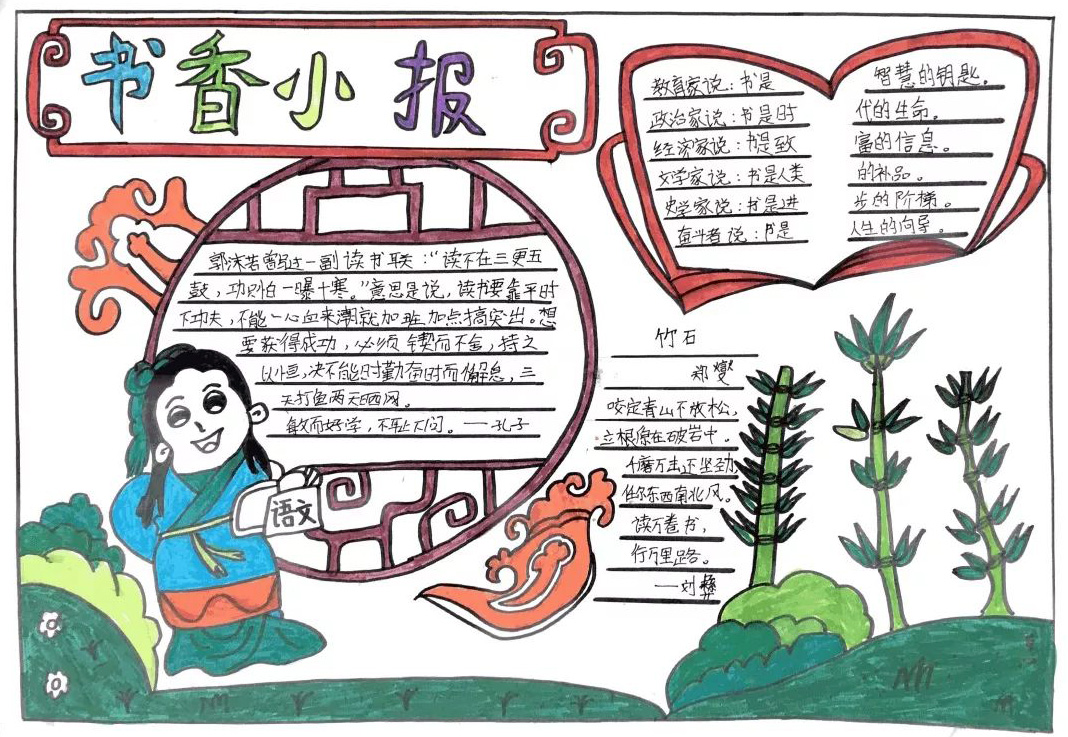 书香小报
教育家说：书是 智慧的钥匙。
政治家说：书是时 代的生命。
经济家说：书是致 富的信息。
文学家说：书是人类 的补品。
史学家说：书是进 步的阶梯。
奋斗者说：书是 人生的向导。
郭沫若曾写过一副读书联：“读不在三更五
鼓，功则怕一曝十寒。”意思是说，读书要靠平时
下功夫，不能一心血来潮就加班加点搞突出。想
要获得成功，必须锲而不舍，持之
以恒，决不能时勤奋时而懈怠，三
天打鱼两天晒网。
敏而好学，不耻下问。——孔子
语文
竹石
郑燮
咬定青山不放松，
立根原在破岩中。
千磨万击还坚劲，
任尔东西南北风。
读万卷书，
行万里路。
——刘彝